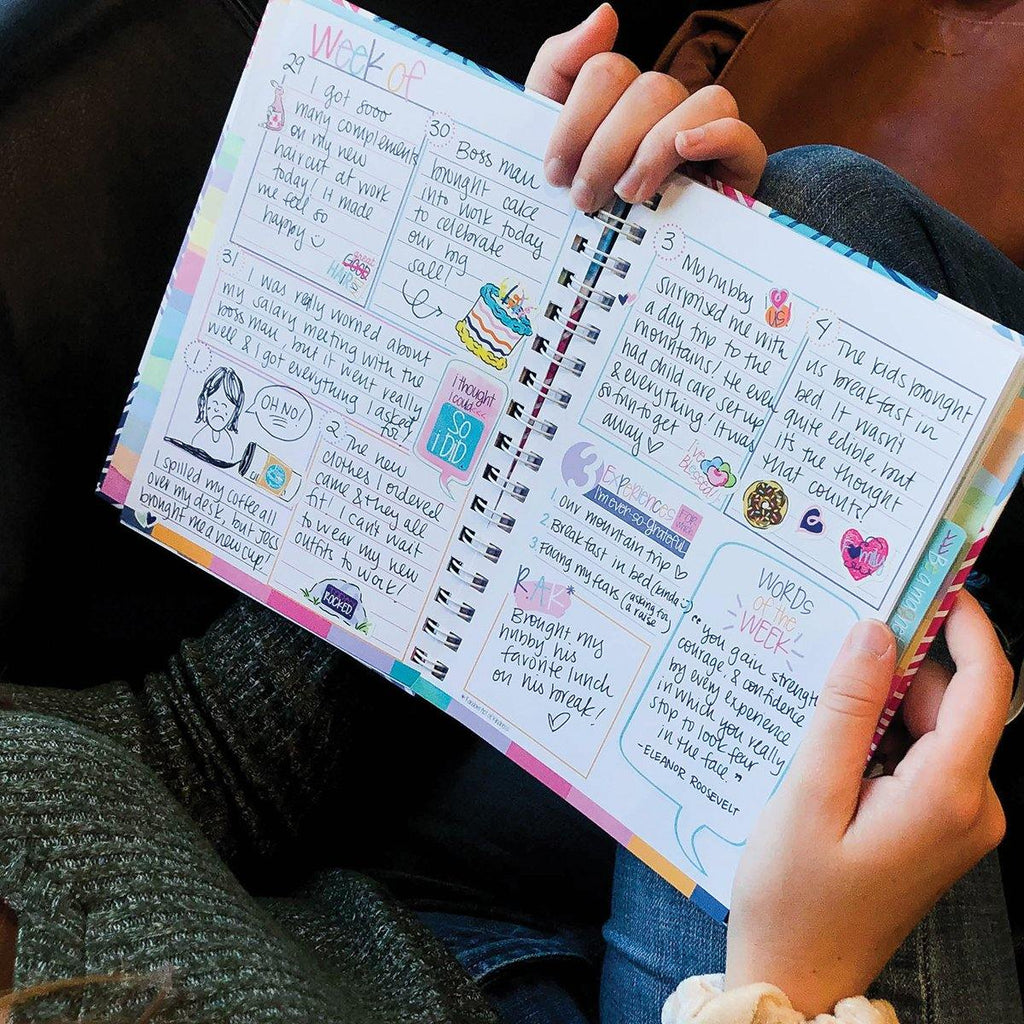 Week of
29
I got sooo
many complements
on my new
haircut at work
today! It made
me feel so
happy
great
GOOD
HAIR
30
Boss man
brought cake
into work today
to celebrate
our big
sale!
31
I was really worried about
my salary meeting with the
boss man, but it went really
well & I got everything I asked
for!
I thought
I could...
SO
I DID
1
OH NO!
I spilled my coffee all
over my desk, but Jess
brought me a new cup!
2
The new
clothes I ordered
came & they all
fit! I can't wait
to wear my new
outfits to work!
ROCKED
3
My hubby
surprised me with
a day trip to the
mountains! He even
had child care set up
& everything! It was
so fun to get
away ♡
US
I'm
so
Blessed!
4
The kids brought
us breakfast in
bed. It wasn't
quite edible, but
it's the thought
that counts!
family
3 EXPERIENCES
FOR WHICH
I'm ever-so-grateful
1. our mountain trip ♡
2. Breakfast in bed (kinda)
3. Facing my fears (asking for
a raise)
RAK*
Brought my
hubby his
favorite lunch
on his break!
♡
WORDS
of the
WEEK
"you gain strength
courage, & confidence
by every experience
in which you really
stop to look fear
in the face."
-ELEANOR ROOSEVELT